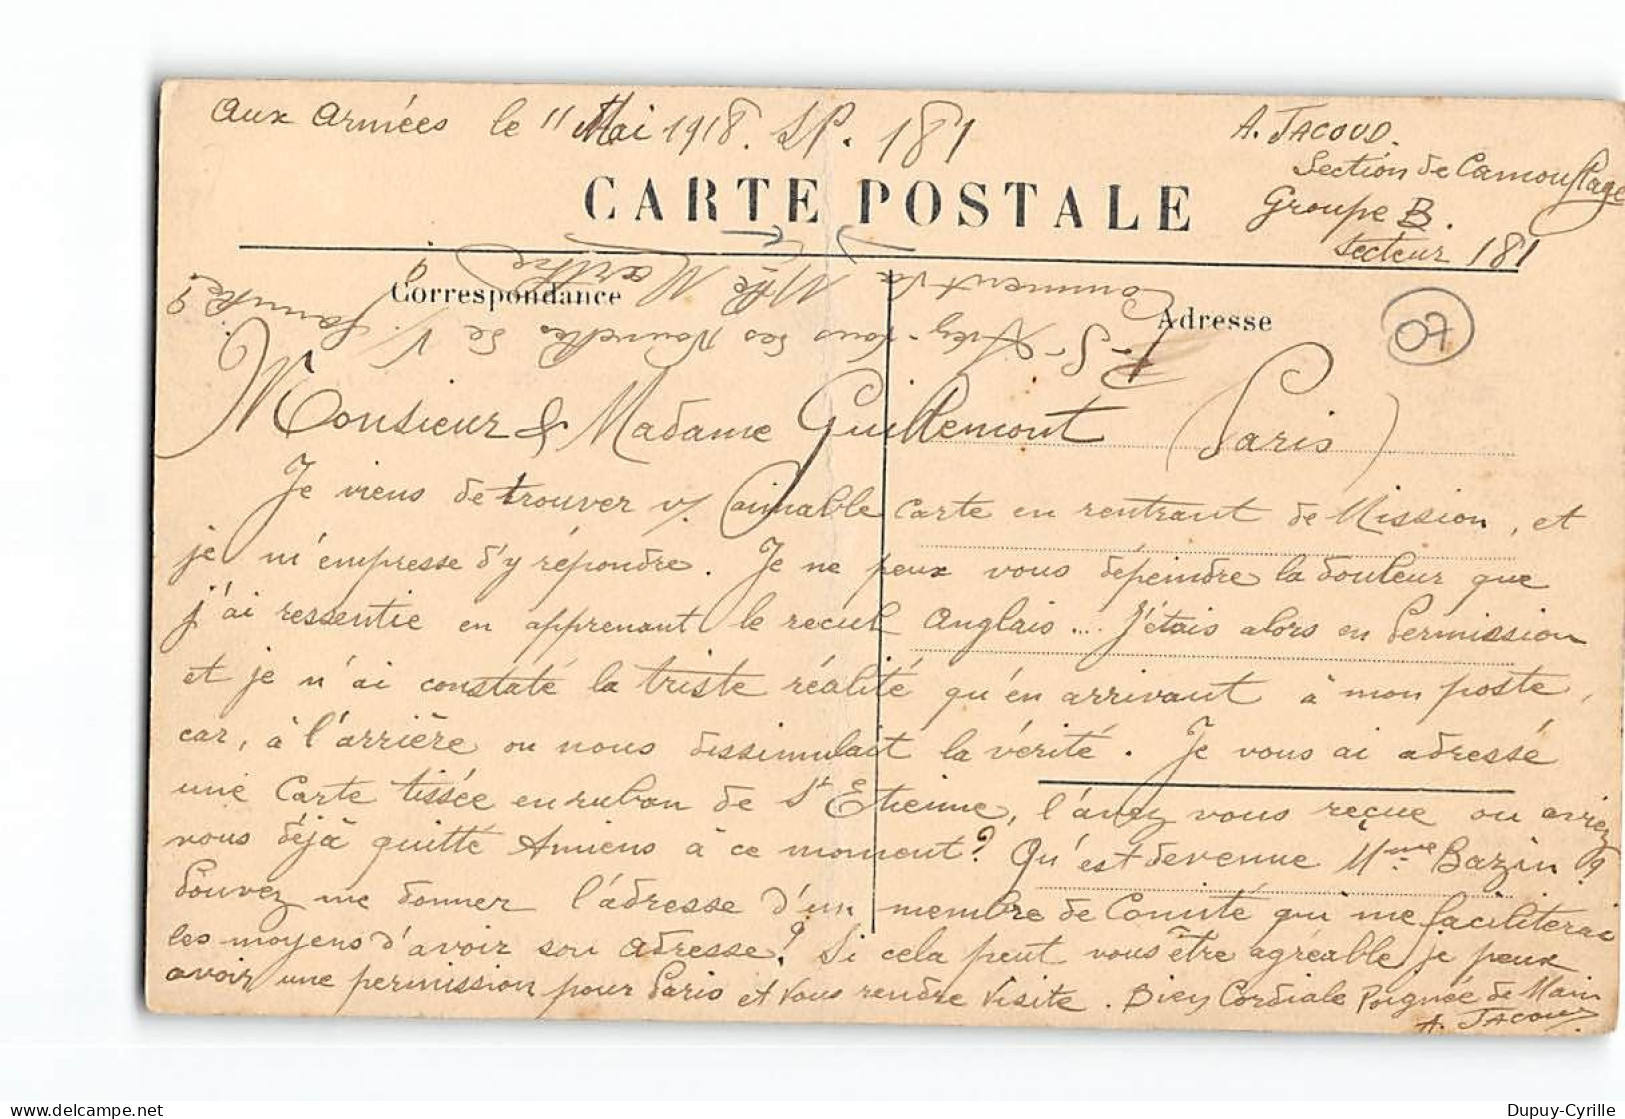 Aux Armées le 11 Mai 1918. S.P. 181
A. JACOUD.
Section de Camouflage
Groupe B.
Secteur 181
CARTE POSTALE
Correspondance
Adresse
07
P.S. Avez-vous des Nouvelles de V. famille?
Comment va Mlle Marthe?
Monsieur & Madame Guillemont (Paris)
Je viens de trouver v/ aimable carte en rentrant de Mission, et
je m'empresse d'y répondre. Je ne peux vous dépeindre la douleur que
j'ai ressentie en apprenant le recul anglais.... J'étais alors en permission
et je n'ai constaté la triste réalité qu'en arrivant à mon poste,
car, à l'arrière on nous dissimulait la vérité. Je vous ai adressé
une Carte tissée en ruban de St Etienne, l'avez vous reçue ou aviez
vous déjà quitté Amiens à ce moment? Qu'est devenue Mme Bazin?
Pouvez me donner l'adresse d'un membre de Comité qui me faciliterai
les moyens d'avoir son adresse? Si cela peut vous être agréable je peux
avoir une permission pour Paris et vous rendre visite. Bien Cordiale Poignée de Main
A. JACOUD
Dupuy-Cyrille